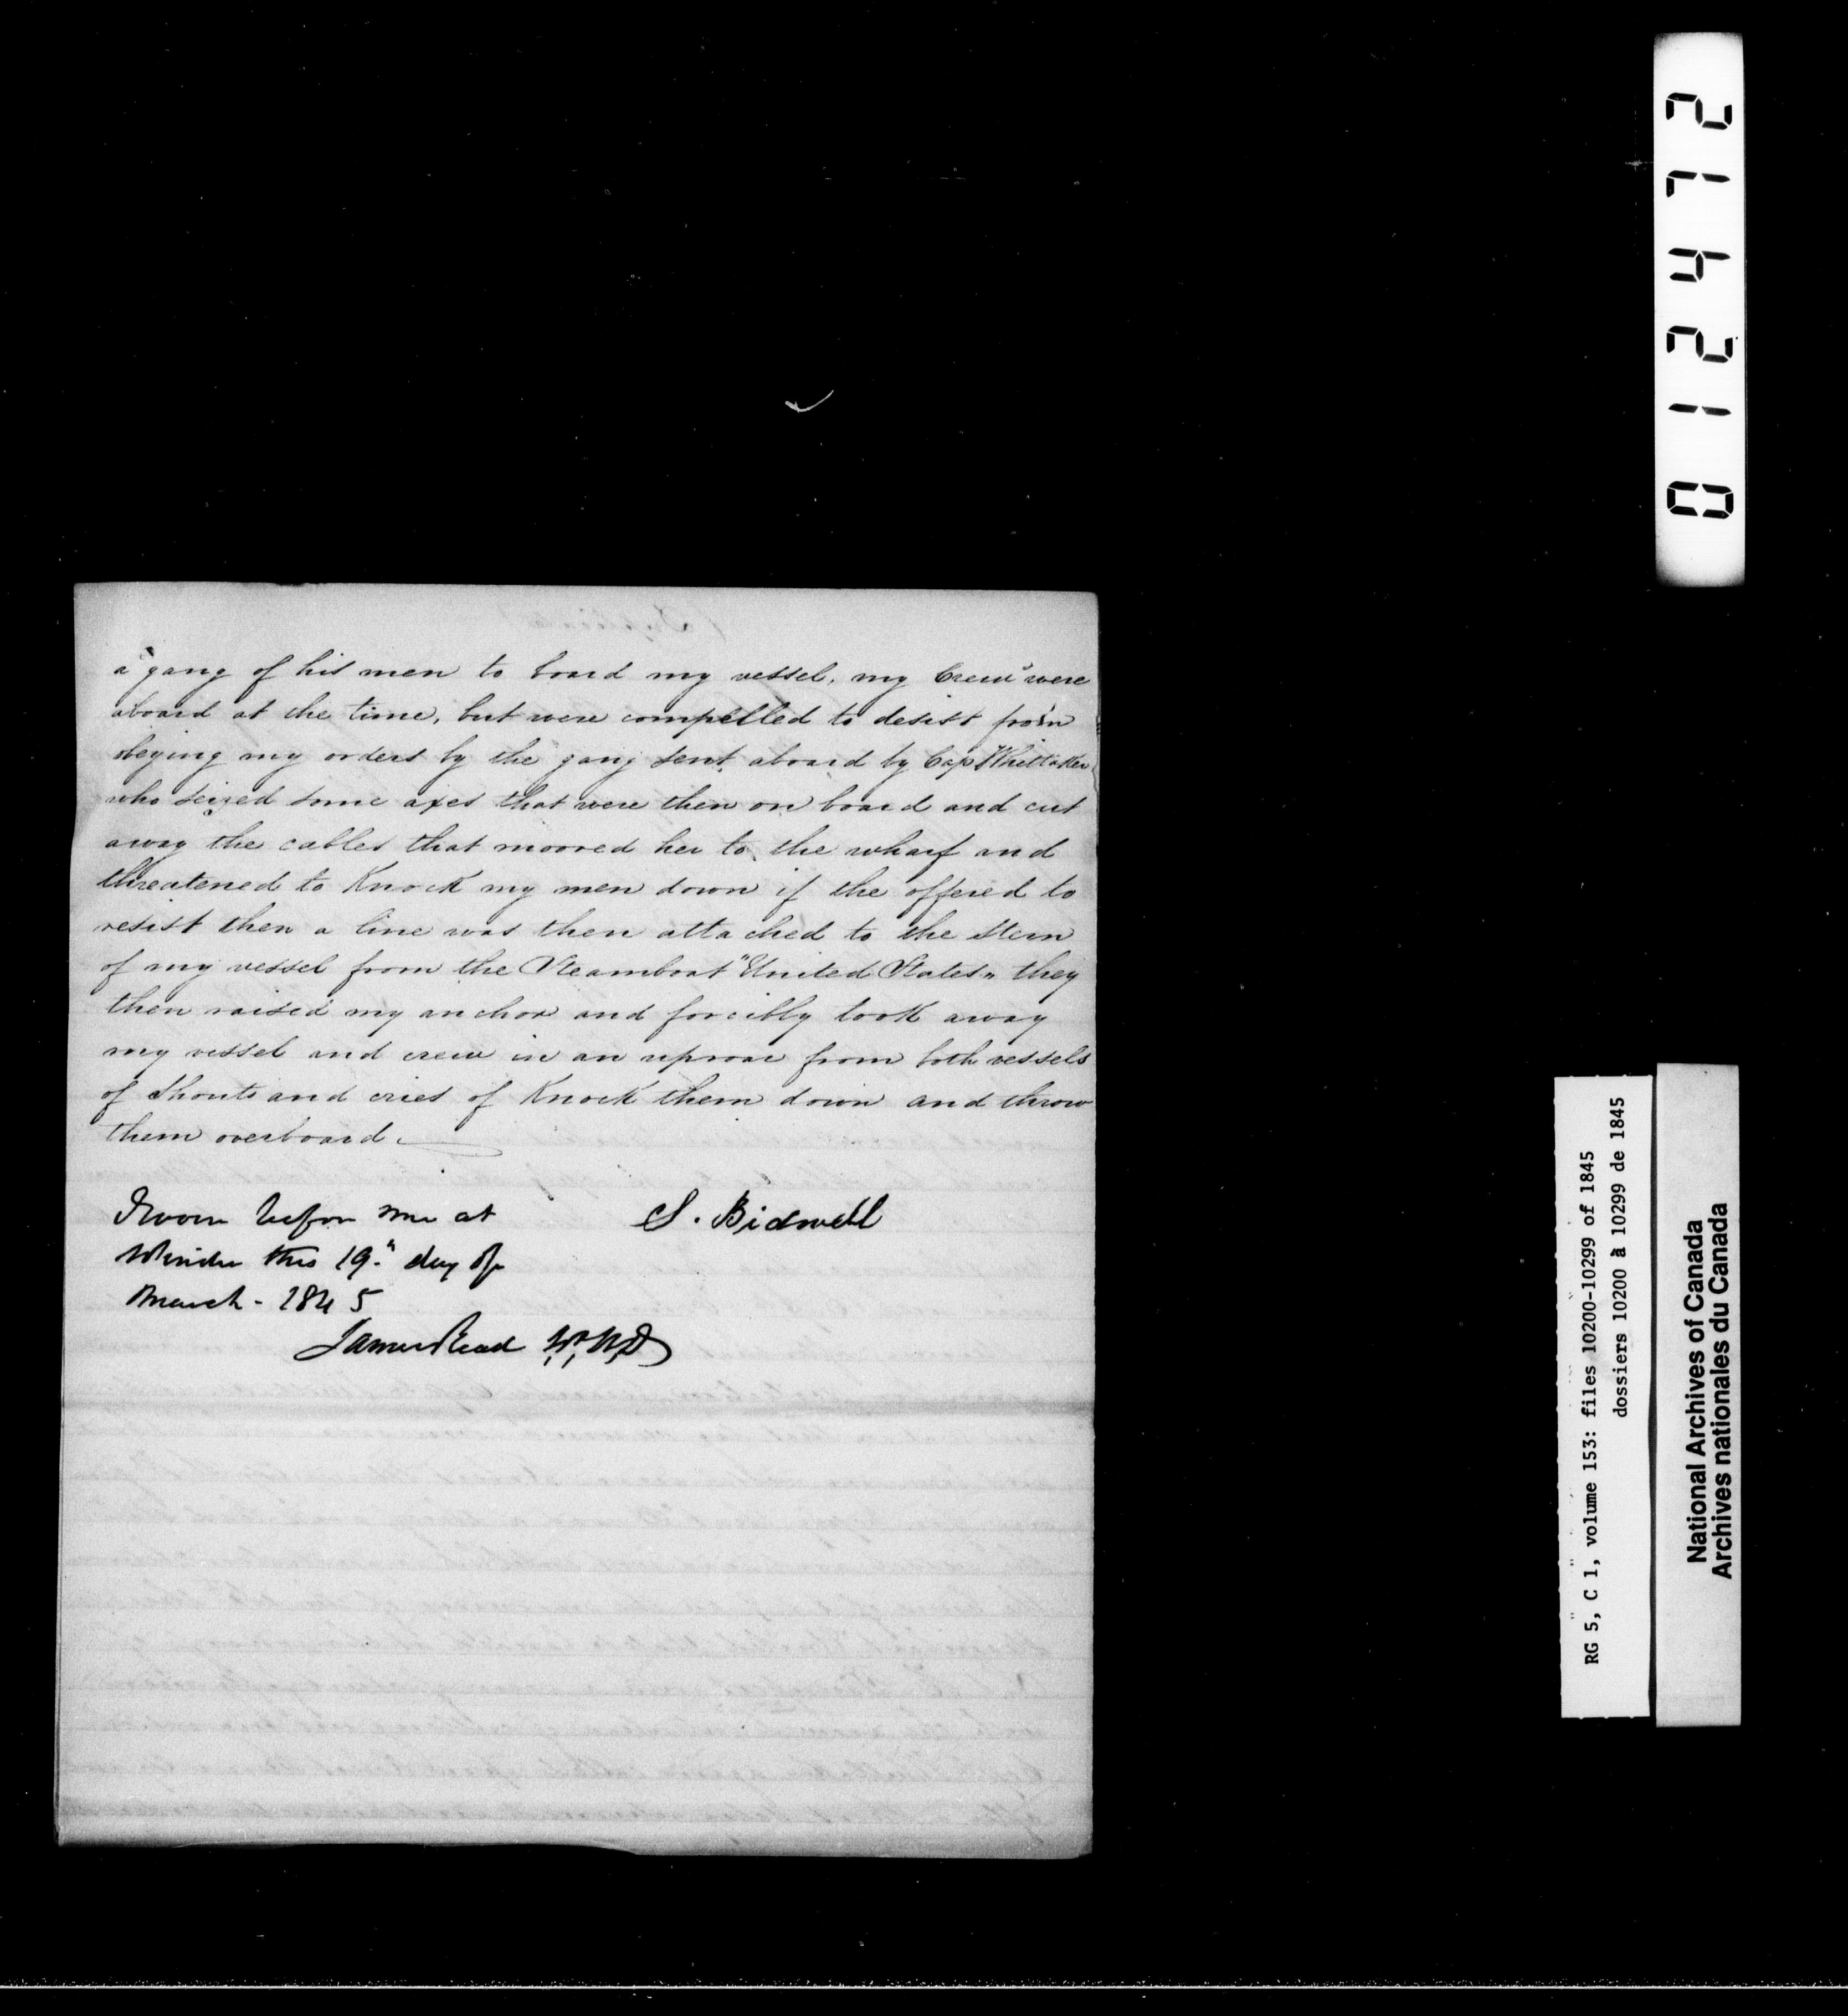 a gang of his men to board my vessel, my Crew were
aboard at the time, but were compelled to desist from
obeying my orders by the gang sent aboard by Cap Whittaker
who seized some axes that were then on board and cut
away the cables that moored her to the wharf and
threatened to Knock my men down if the offered to
resist then a line was then attached to the Stern
of my vessel from the Steamboat "United States" they
then raised my anchor and forcibly took away
my vessel and crew in an uproar from both vessels
of Shouts and cries of Knock them down and throw
them overboard.
Sworn before me at
S. Bidwell
this 19" day of
March - 1845
James Read
012472
RG 5, C 1, volume 153: files 10200-10299 of 1845
dossiers 10200 à 10299 de 1845
National Archives of Canada
Archives nationales du Canada